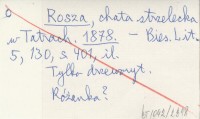 Rosza, chata strzelecka
w Tatrach 1878. – Bies. Lit.
5, 130, s 401, il.
Tylko drzeworyt.
Różanka?